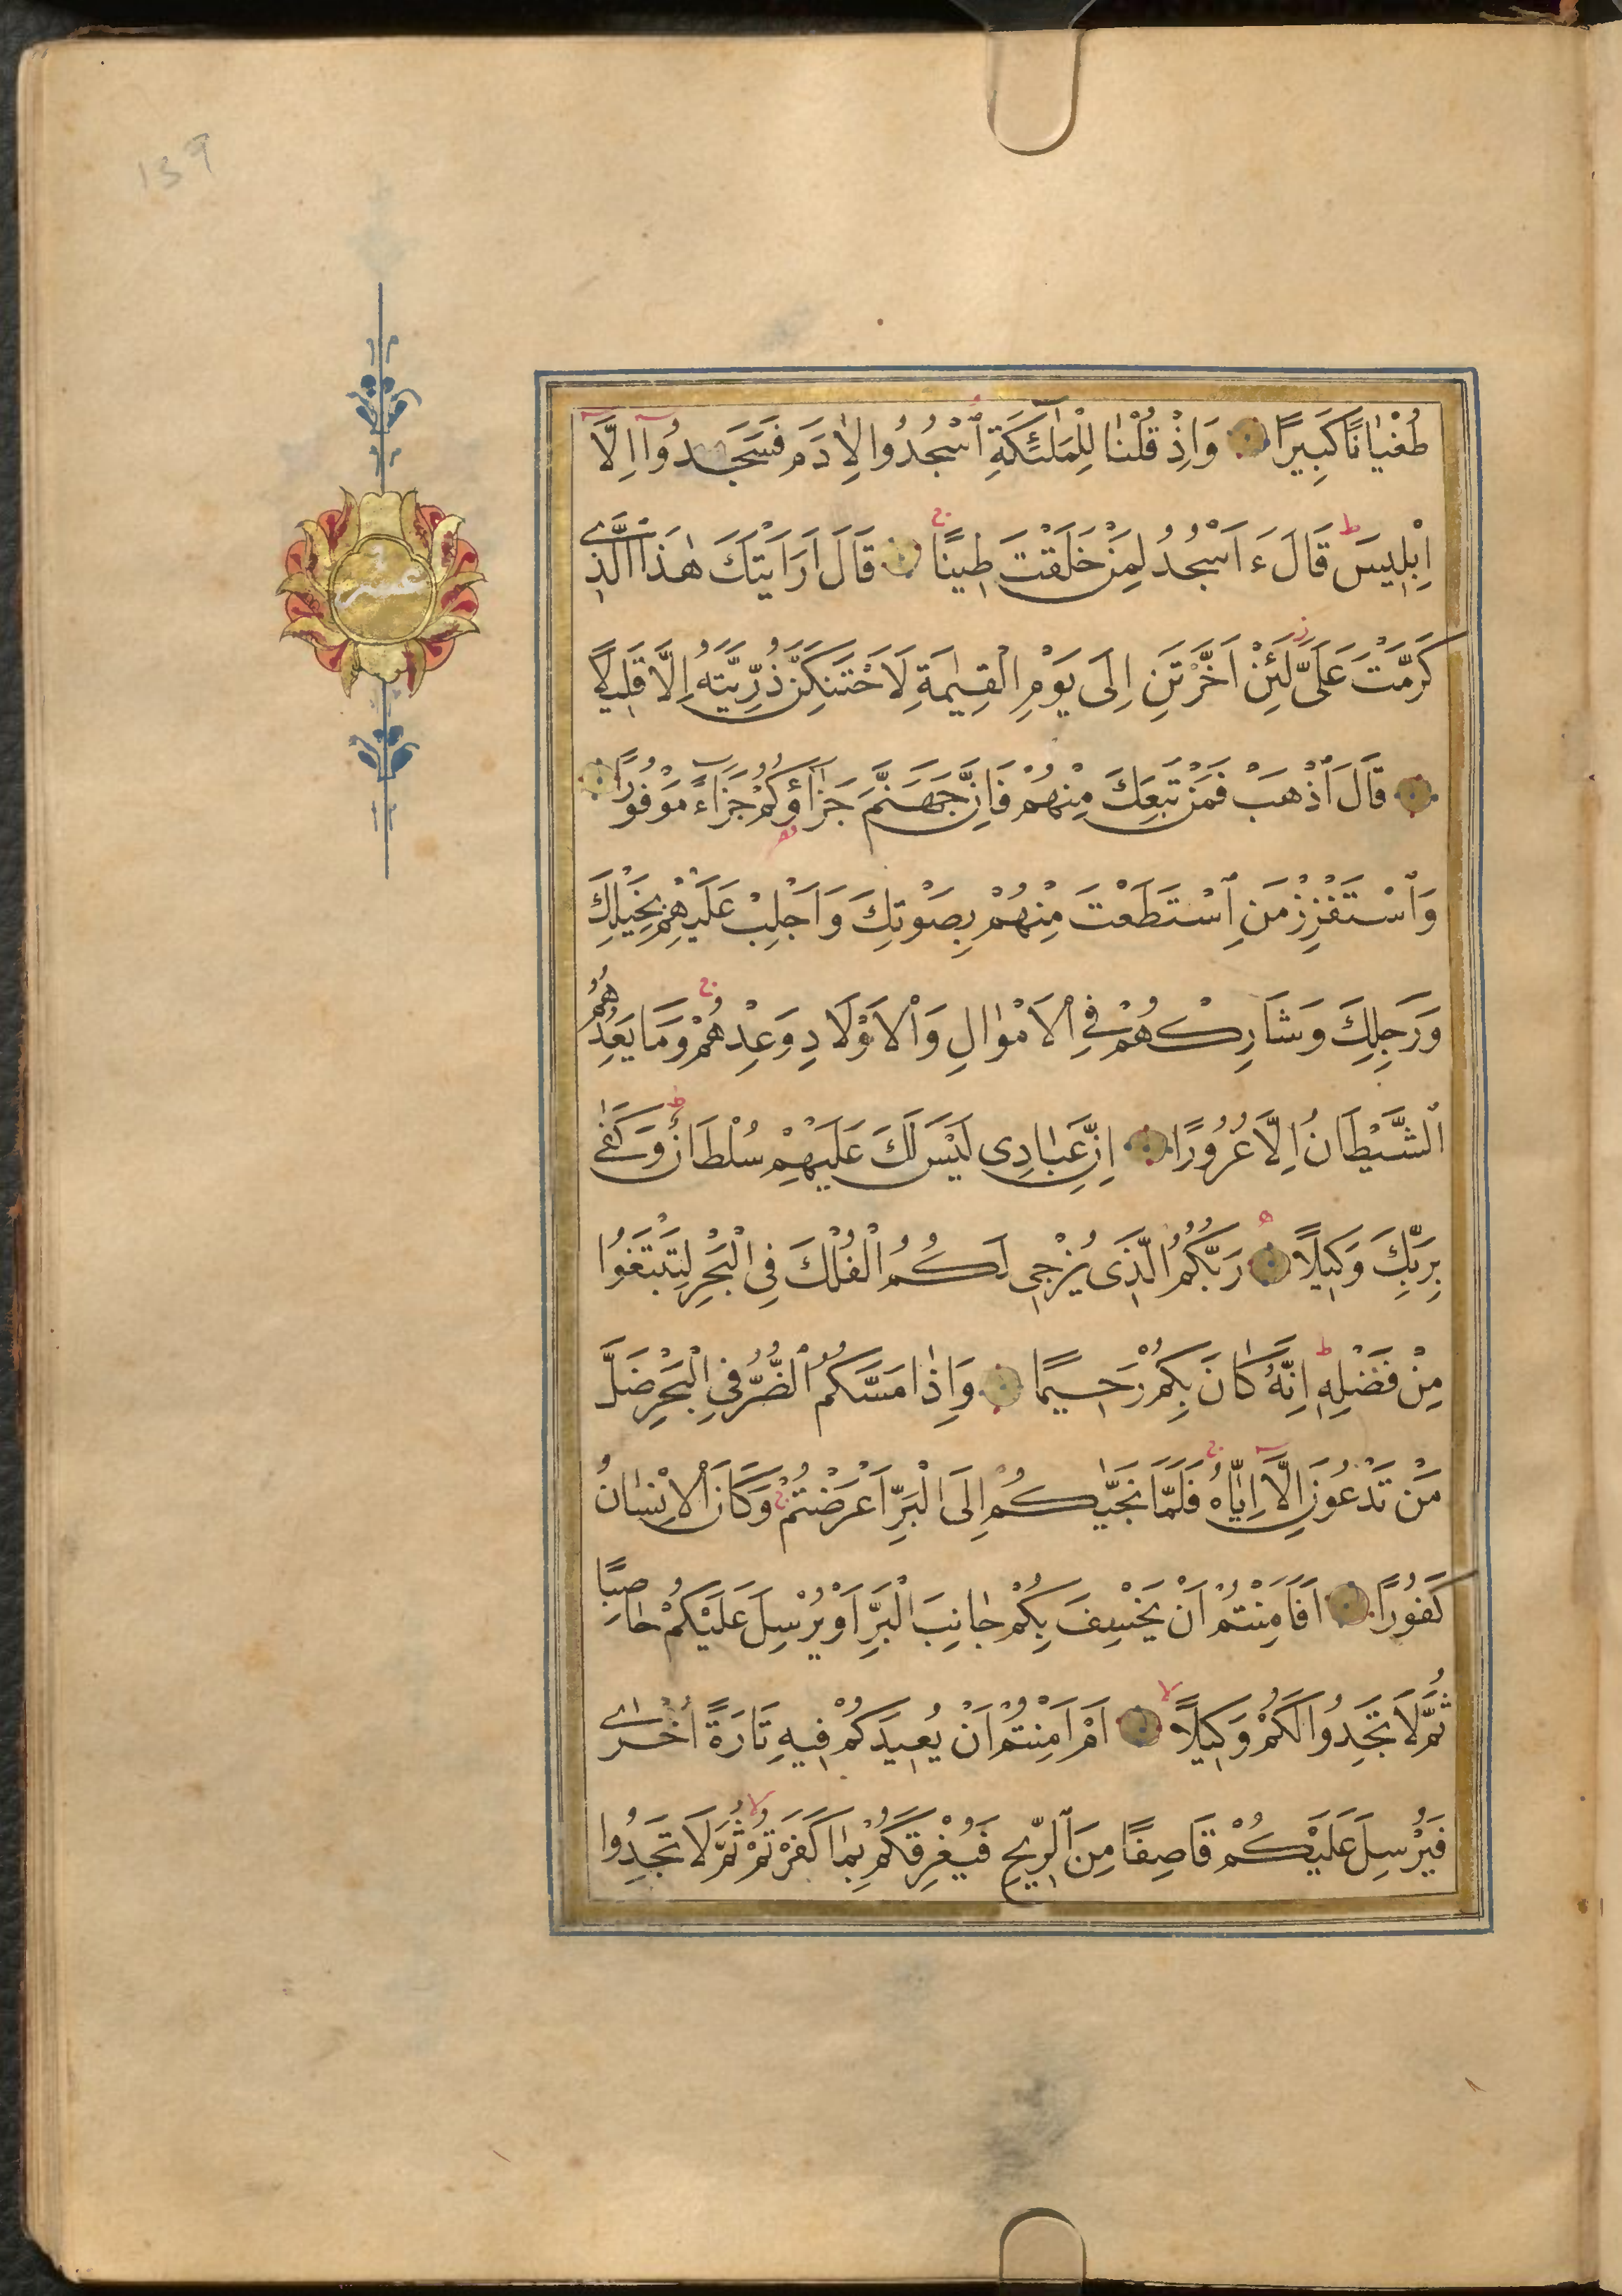 139
طُغْيَانًا كَبِيرًا وَاِذْ قُلْنَا لِلْمَلٰئِكَةِ ٱسْجُدُوا لِاٰدَمَ فَسَجَدُوٓا اِلَّٓا
اِبْلِيسَ ط قَالَ ءَاَسْجُدُ لِمَنْ خَلَقْتَ طِينًا ج قَالَ اَرَاَيْتَكَ هٰذَا الَّذِى
عشر
كَرَّمْتَ عَلَىَّ ز لَئِنْ اَخَّرْتَنِ اِلَى يَوْمِ الْقِيٰمَةِ لَاَحْتَنِكَنَّ ذُرِّيَّتَهُ اِلَّا قَلِيلًا
قَالَ ٱذْهَبْ فَمَنْ تَبِعَكَ مِنْهُمْ فَاِنَّ جَهَنَّمَ جَزَآؤُكُمْ جَزَآءً مَوْفُورًا
وَٱسْتَفْزِزْ مَنِ ٱسْتَطَعْتَ مِنْهُمْ بِصَوْتِكَ وَاَجْلِبْ عَلَيْهِمْ بِخَيْلِكَ
وَرَجِلِكَ وَشَارِكْهُمْ فِى ٱلْاَمْوٰالِ وَٱلْاَوْلَادِ وَعِدْهُمْ ج وَمَا يَعِدُهُمُ
ٱلشَّيْطَانُ اِلَّا غُرُورًا اِنَّ عِبَادِى لَيْسَ لَكَ عَلَيْهِمْ سُلْطَانٌ ط وَكَفٰى
بِرَبِّكَ وَكِيلًا رَبُّكُمُ الَّذِى يُزْجِى لَكُمُ الْفُلْكَ فِى الْبَحْرِ لِتَبْتَغُوا
مِنْ فَضْلِهِ ط اِنَّهُ كَانَ بِكُمْ رَحِيمًا وَاِذَا مَسَّكُمُ ٱلضُّرُّ فِى الْبَحْرِ ضَلَّ
مَنْ تَدْعُونَ اِلَّٓا اِيَّاهُ ج فَلَمَّا نَجّٰيكُمْ اِلَى الْبَرِّ اَعْرَضْتُمْ ج وَكَانَ ٱلْاِنْسَانُ
كَفُورًا اَفَاَمِنْتُمْ اَنْ يَخْسِفَ بِكُمْ جَانِبَ الْبَرِّ اَوْ يُرْسِلَ عَلَيْكُمْ حَاصِبًا
ثُمَّ لَا تَجِدُوا لَكُمْ وَكِيلًا لا اَمْ اَمِنْتُمْ اَنْ يُعِيدَكُمْ فِيهِ تَارَةً اُخْرٰى
فَيُرْسِلَ عَلَيْكُمْ قَاصِفًا مِنَ ٱلرِّيحِ فَيُغْرِقَكُمْ بِمَا كَفَرْتُمْ لا ثُمَّ لَا تَجِدُوا